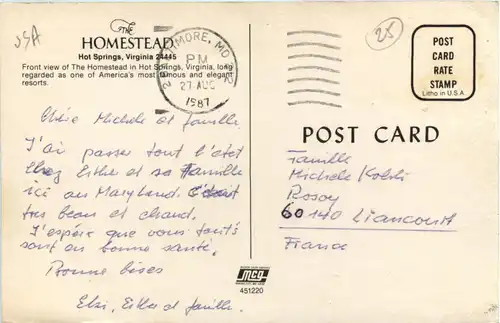 USA
The
HOMESTEAD
Hot Springs, Virginia 24445
Front view of The Homestead in Hot Springs, Virginia, long
regarded as one of America's most famous and elegant
resorts.
BALTIMORE, MD 212
PM
27 AUG
1987
25
POST
CARD
RATE
STAMP
Litho in U.S.A.
POST CARD
Chère Michele et famille
J'ai passer tout l'état
chez Esthe et sa famille
ici au Maryland. C'était
tres beau et chaud.
J'espère que vous touts
sont en bonne santé.
Bonne bises
Elsi, Esthe et famille.
Famille
Michele
Rosoy
60140 Liancourt
France
mcg
451220